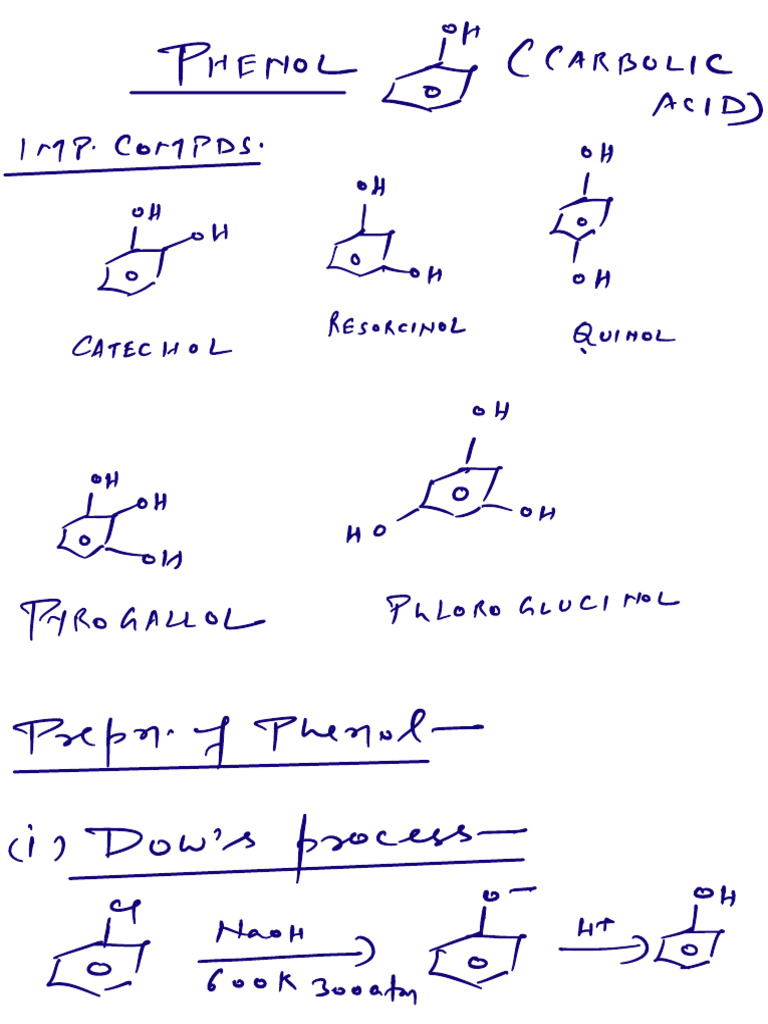 PHENOL OH (CARBOLIC ACID)
IMP. COMPDS.
OH OH
CATECHOL
OH OH
RESORCINOL
OH OH
QUINOL
OH OH OH
PYROGALLOL
OH OH HO
PHLORO GLUCINOL
Prepn. of Phenol—
(i) Dow's process—
Cl NaOH O− H+ OH
600K 300atm